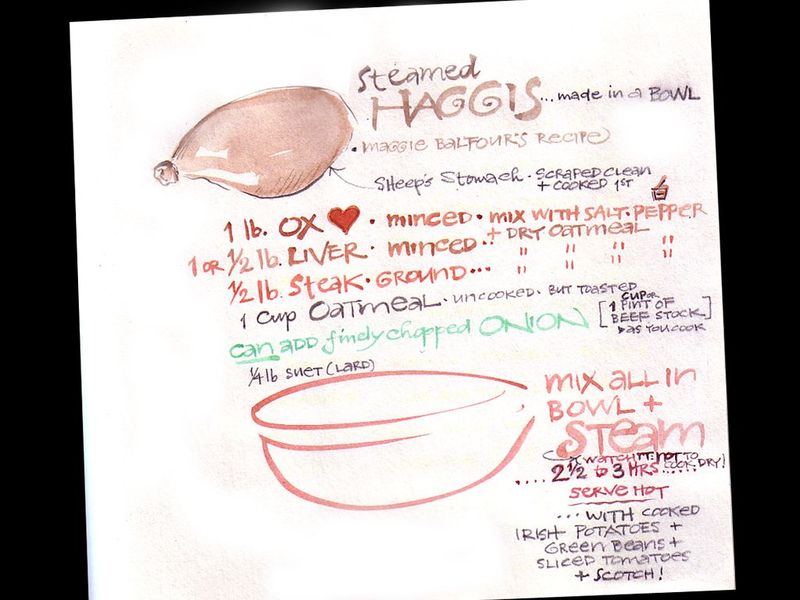 Steamed
HAGGIS...made in a BOWL
• maggie Balfour's Recipe
Sheep's Stomach • SCRAPED CLEAN
+ COOKED 1ST
1 lb. OX ❤ • minced • mix WITH SALT • PEPPER
+ DRY OATMEAL
1 OR 1/2 lb. LIVER • minced •• " " " "
1/2 lb. Steak • GROUND ••• " " " "
1 cup Oatmeal • uncooked • BUT TOASTED
can ADD finely chopped ONION
[1 CUP OR
PINT OF
BEEF STOCK]
AS YOU COOK
1/4 lb SUET (LARD)
mix all in
BOWL +
Steam
WATCH IT NOT TO
COOK DRY!
.... 2 1/2 to 3 HRS ......
SERVE HOT
...WITH COOKED
IRISH POTATOES +
GREEN BEANS +
SLICED TOMATOES
+ SCOTCH!